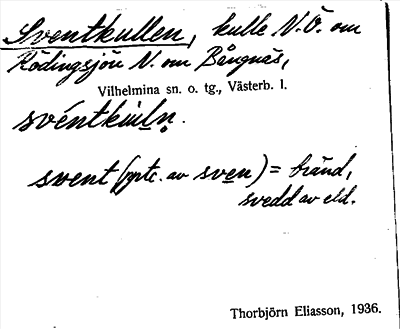 Sventkullen, kulle N.Ö. om
Rödingsjön N. om Bångnäs,
Vilhelmina sn. o. tg., Västerb. l.
svéntkùln.
svent (pptc. av sven) = bränd,
svedd av eld.
Thorbjörn Eliasson, 1936.